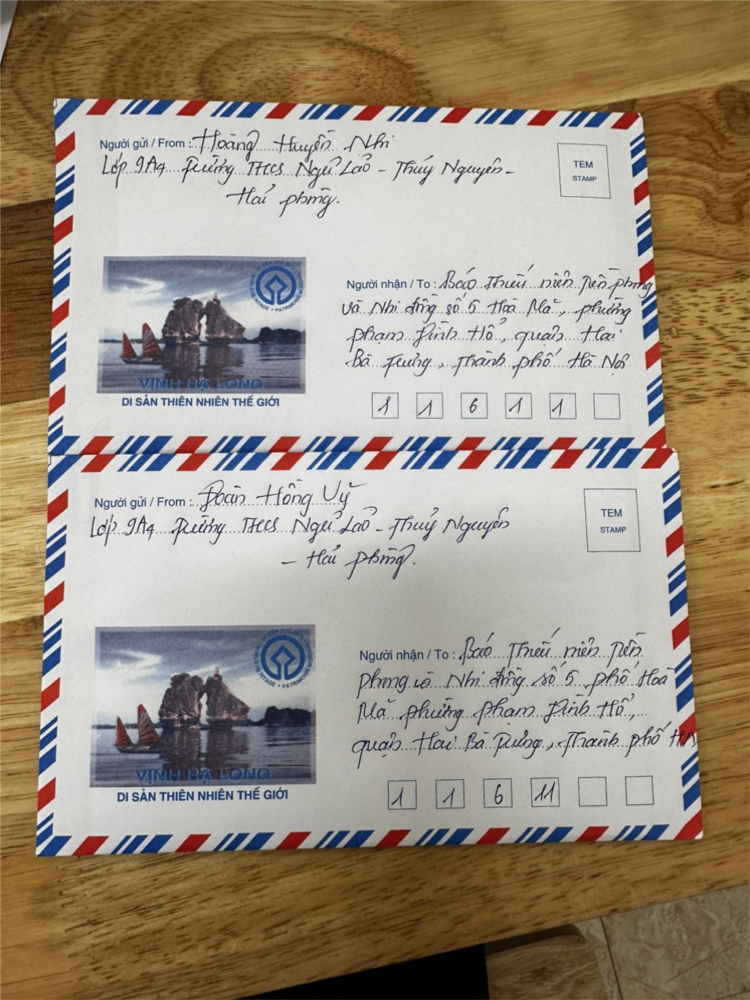 Người gửi / From : Hoàng Huyền Nhi
Lớp 9A4 Trường THCS Ngũ Lão - Thuỷ Nguyên -
Hải phòng.
TEM
STAMP
Người nhận / To : Báo Thiếu niên Tiền phong
và Nhi đồng số 5 Hoà Mã, phường
phạm Đình Hổ, quận Hai
Bà Trưng, Thành phố Hà Nội
VỊNH HẠ LONG
DI SẢN THIÊN NHIÊN THẾ GIỚI
1 1 6 1 1
Người gửi / From : Đoàn Hồng Vỹ
Lớp 9A4 Trường THCS Ngũ Lão - Thuỷ Nguyên
- Hải phòng.
TEM
STAMP
Người nhận / To : Báo Thiếu niên Tiền
phong và Nhi đồng số 5 phố Hoà
Mã phường phạm Đình Hổ,
quận Hai Bà Trưng, Thành phố HN
VỊNH HẠ LONG
DI SẢN THIÊN NHIÊN THẾ GIỚI
1 1 6 11